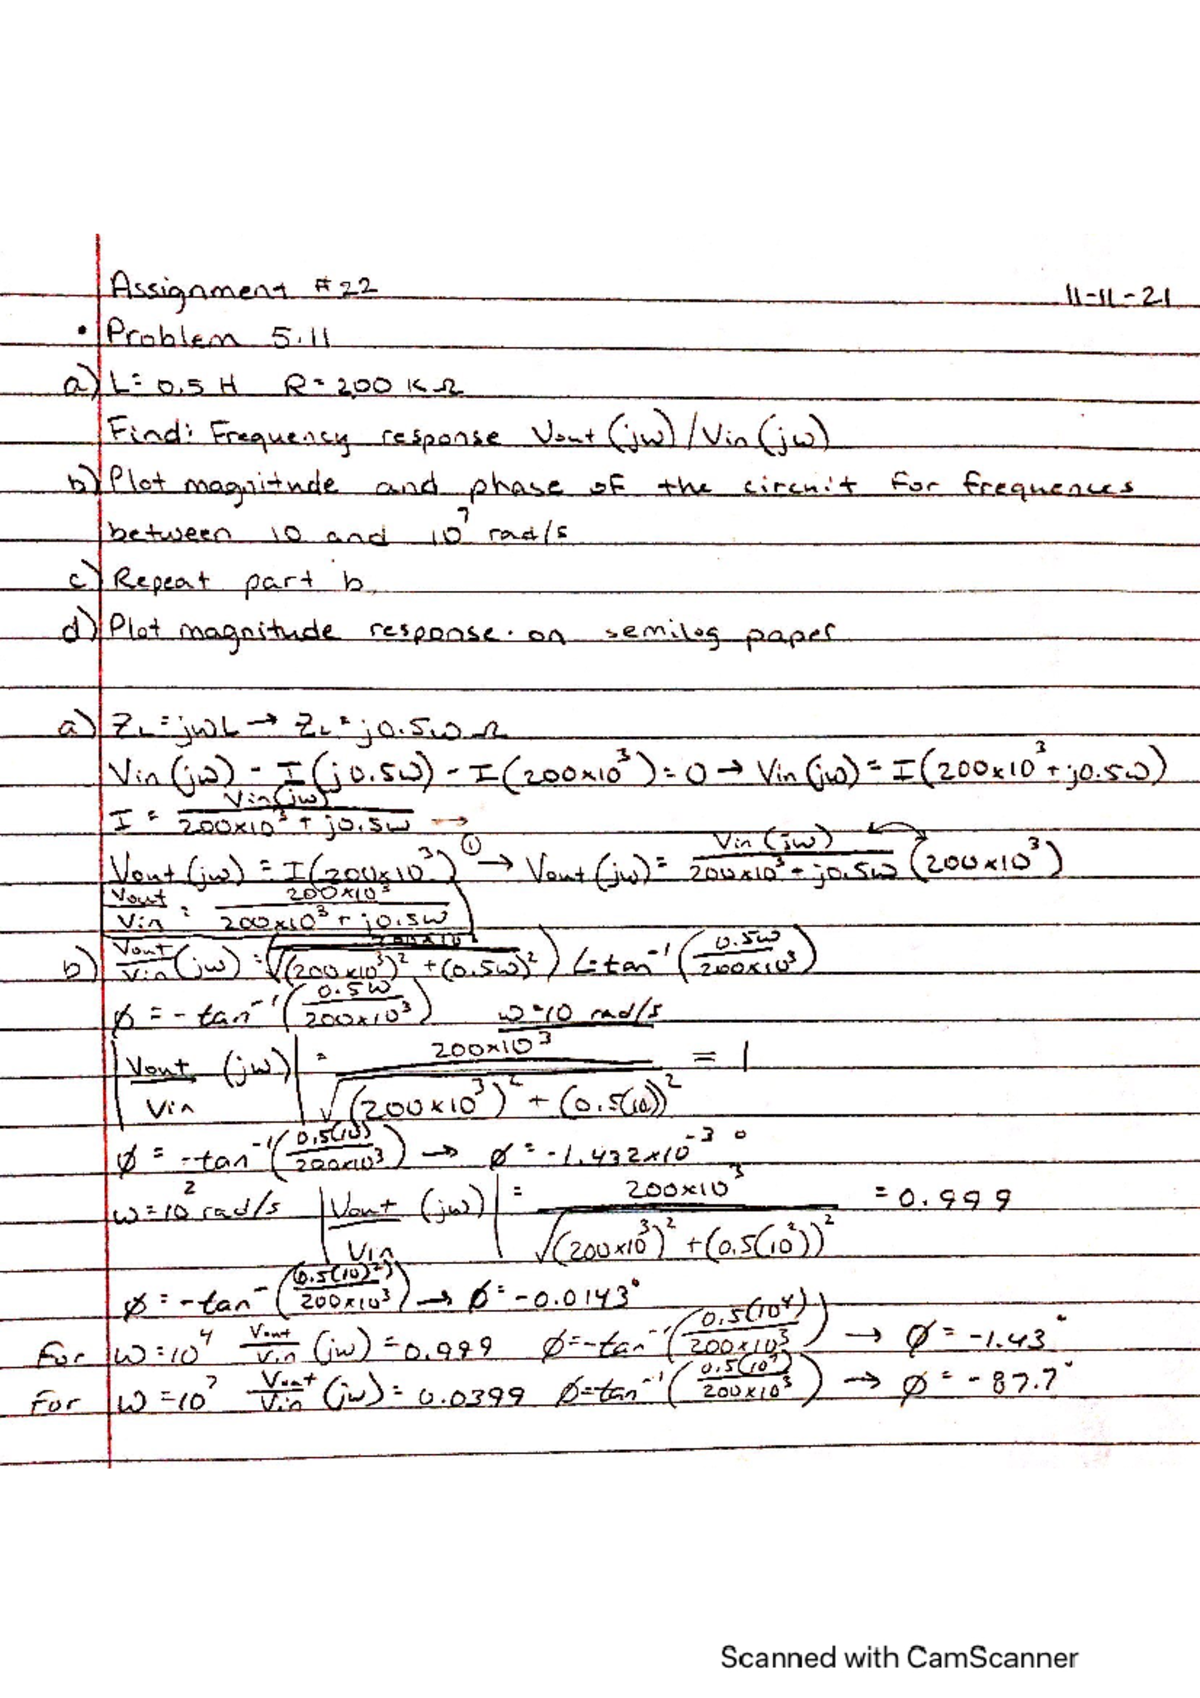 Assignment #22 11-11-21
• Problem 5.11
a) L = 0.5 H R = 200 KΩ
Find: Frequency response Vout (jω) / Vin (jω)
b) Plot magnitude and phase of the circuit for frequences
between 10 and 10^7 rad/s
c) Repeat part b.
d) Plot magnitude response on semilog paper
a) ZL = jωL → ZL = j0.5ω Ω
Vin (jω) - I (j0.5ω) - I (200x10^3) = 0 → Vin (jω) = I (200x10^3 + j0.5ω)
I = Vin (jω) / 200x10^3 + j0.5ω →
Vout (jω) = I (200x10^3) ① → Vout (jω) = Vin (jω) / 200x10^3 + j0.5ω (200x10^3)
Vout / Vin = 200x10^3 / 200x10^3 + j0.5ω
b) Vout / Vin (jω) = (200x10^3 / √(200x10^3)^2 + (0.5ω)^2) ∠-tan^-1 (0.5ω / 200x10^3)
ø = -tan^-1 (0.5ω / 200x10^3) ω = 10 rad/s
|Vout / Vin (jω)| = 200x10^3 / √(200x10^3)^2 + (0.5(10))^2 = 1
ø = -tan^-1 (0.5(10) / 200x10^3) → ø = -1.432x10^-3 °
ω = 10^2 rad/s |Vout / Vin (jω)| = 200x10^3 / √(200x10^3)^2 + (0.5(10^2))^2 = 0.999
ø = -tan^- (0.5(10)^2) / 200x10^3) → ø = -0.0143°
For ω = 10^4 Vout / Vin (jω) = 0.999 ø = -tan^-1 (0.5(10^4) / 200x10^3) → ø = -1.43°
For ω = 10^7 Vout / Vin (jω) = 0.0399 ø = tan^-1 (0.5(10^7) / 200x10^3) → ø = -87.7°
Scanned with CamScanner